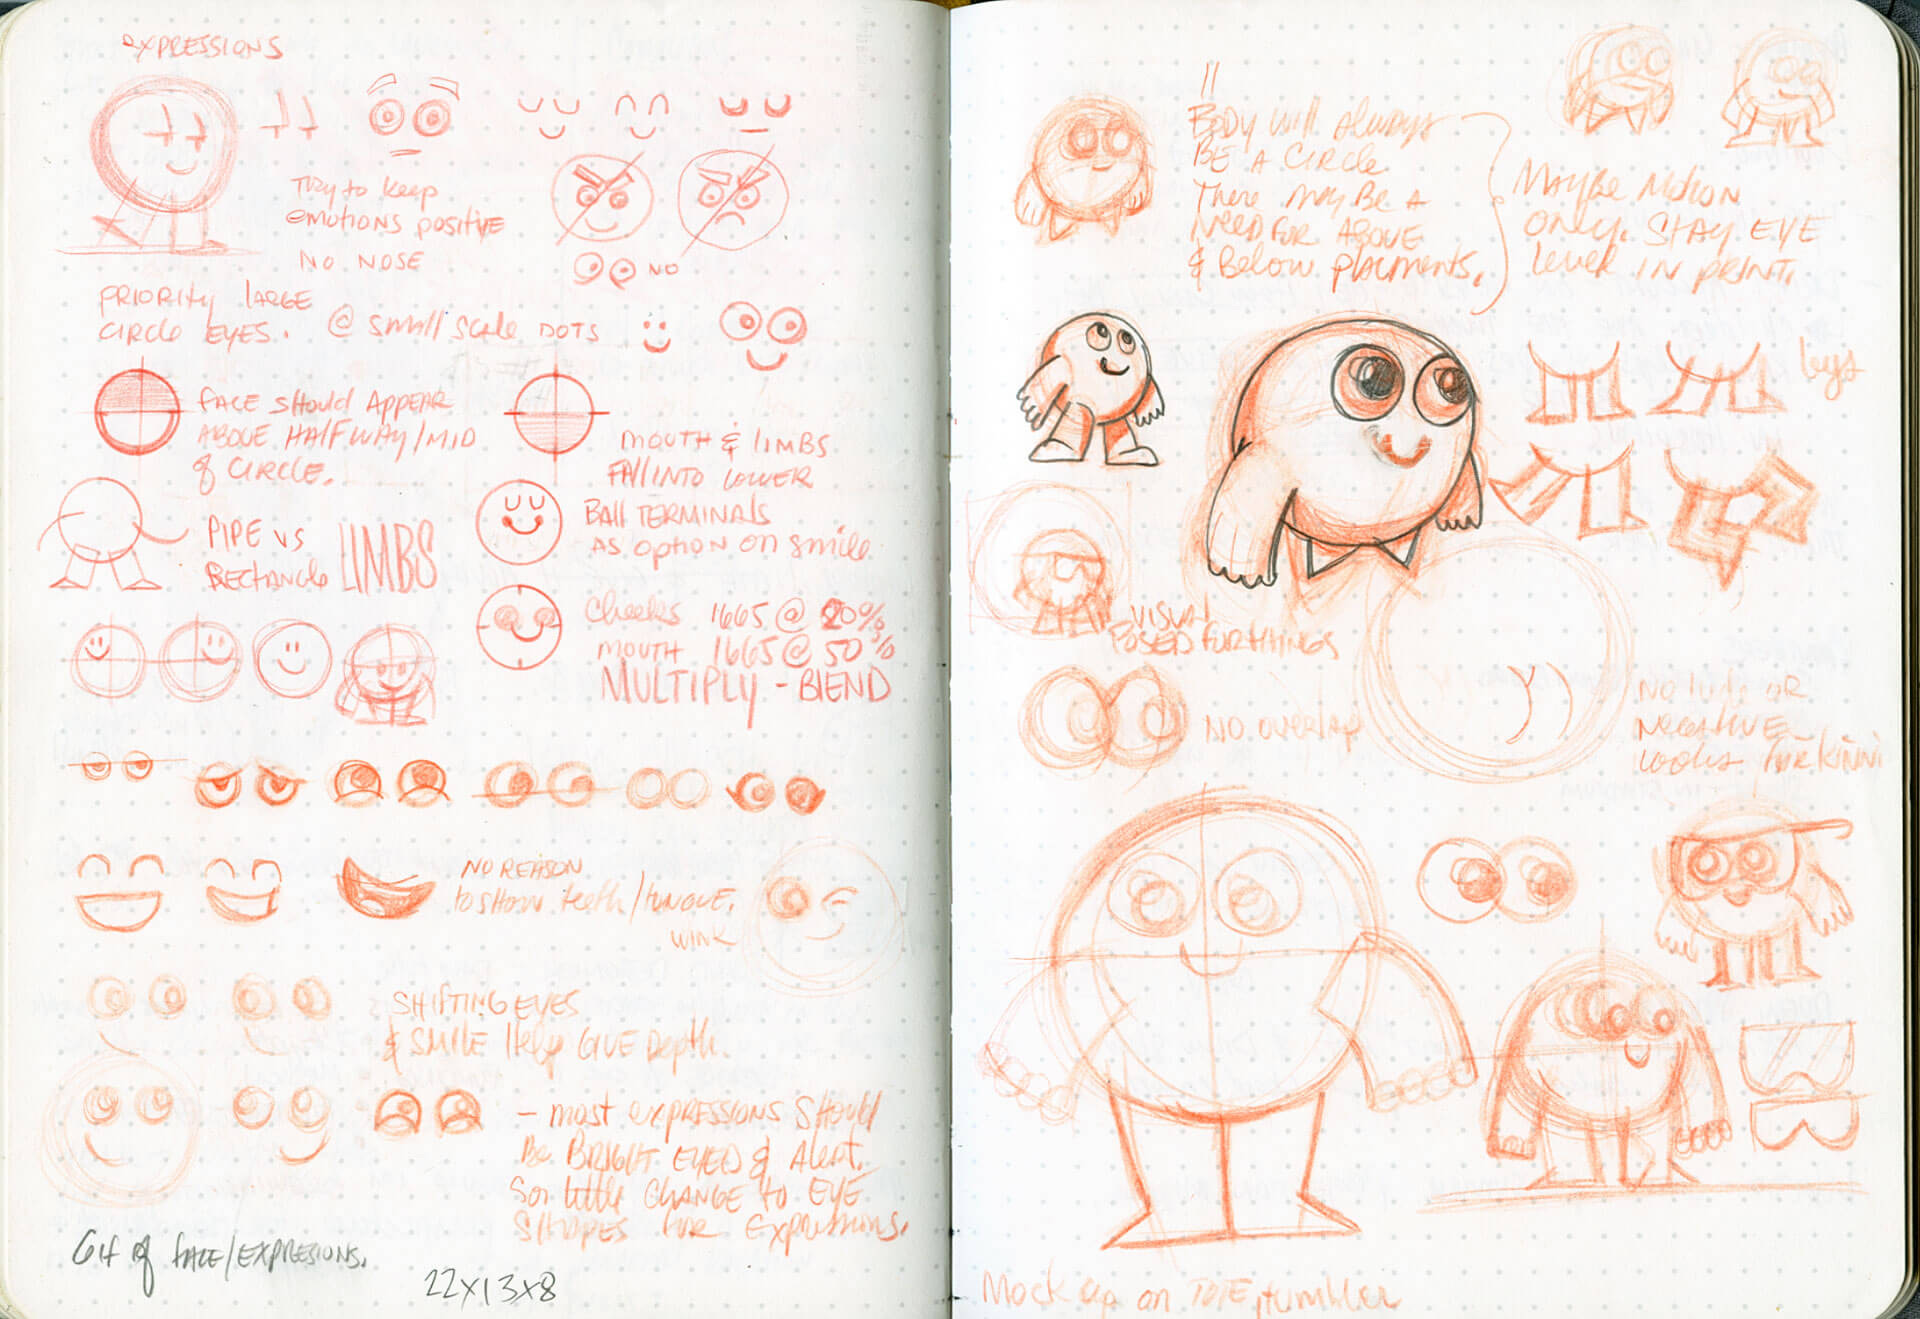 EXPRESSIONS
TRY to keep
emotions positive
NO NOSE
NO
PRIORITY LARGE
CIRCLE EYES.
@ small scale DOTS
FACE SHOULD APPEAR
ABOVE HALFWAY/MID
of CIRCLE.
MOUTH & LIMBS
FALL INTO LOWER
PIPE VS
RECTANGLE
LIMBS
BALL TERMINALS
AS OPTION ON SMILE
Cheeks 1665 @ 20%
MOUTH 1665 @ 50%
MULTIPLY - BLEND
NO REASON
to SHOW teeth/TONGUE.
WINK
SHIFTING EYES
& SMILE Help GIVE Depth.
- most expressions should
Be BRIGHT EYED & Alert.
So little CHANGE to EYE
SHAPES FOR Expressions.
Gif of FACE/EXPRESIONS.
22x13x8
BODY will Always
BE A CIRCLE
There may BE A
NEED FOR ABOVE
& Below PLACMENTS.
MAYBE MOTION
ONLY. STAY EYE
LEVEL IN PRINT.
legs
VISUAL
POSED FOR THINGS
NO OVERLAP
NO OR
NEGATIVE
looks for KINNI
Mock up on TOTE, tumbler